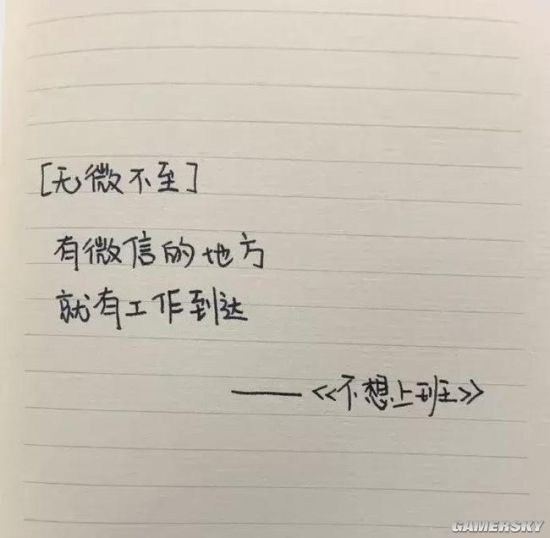 [无微不至]
有微信的地方
就有工作到达
——《不想上班》
GAMERSKY